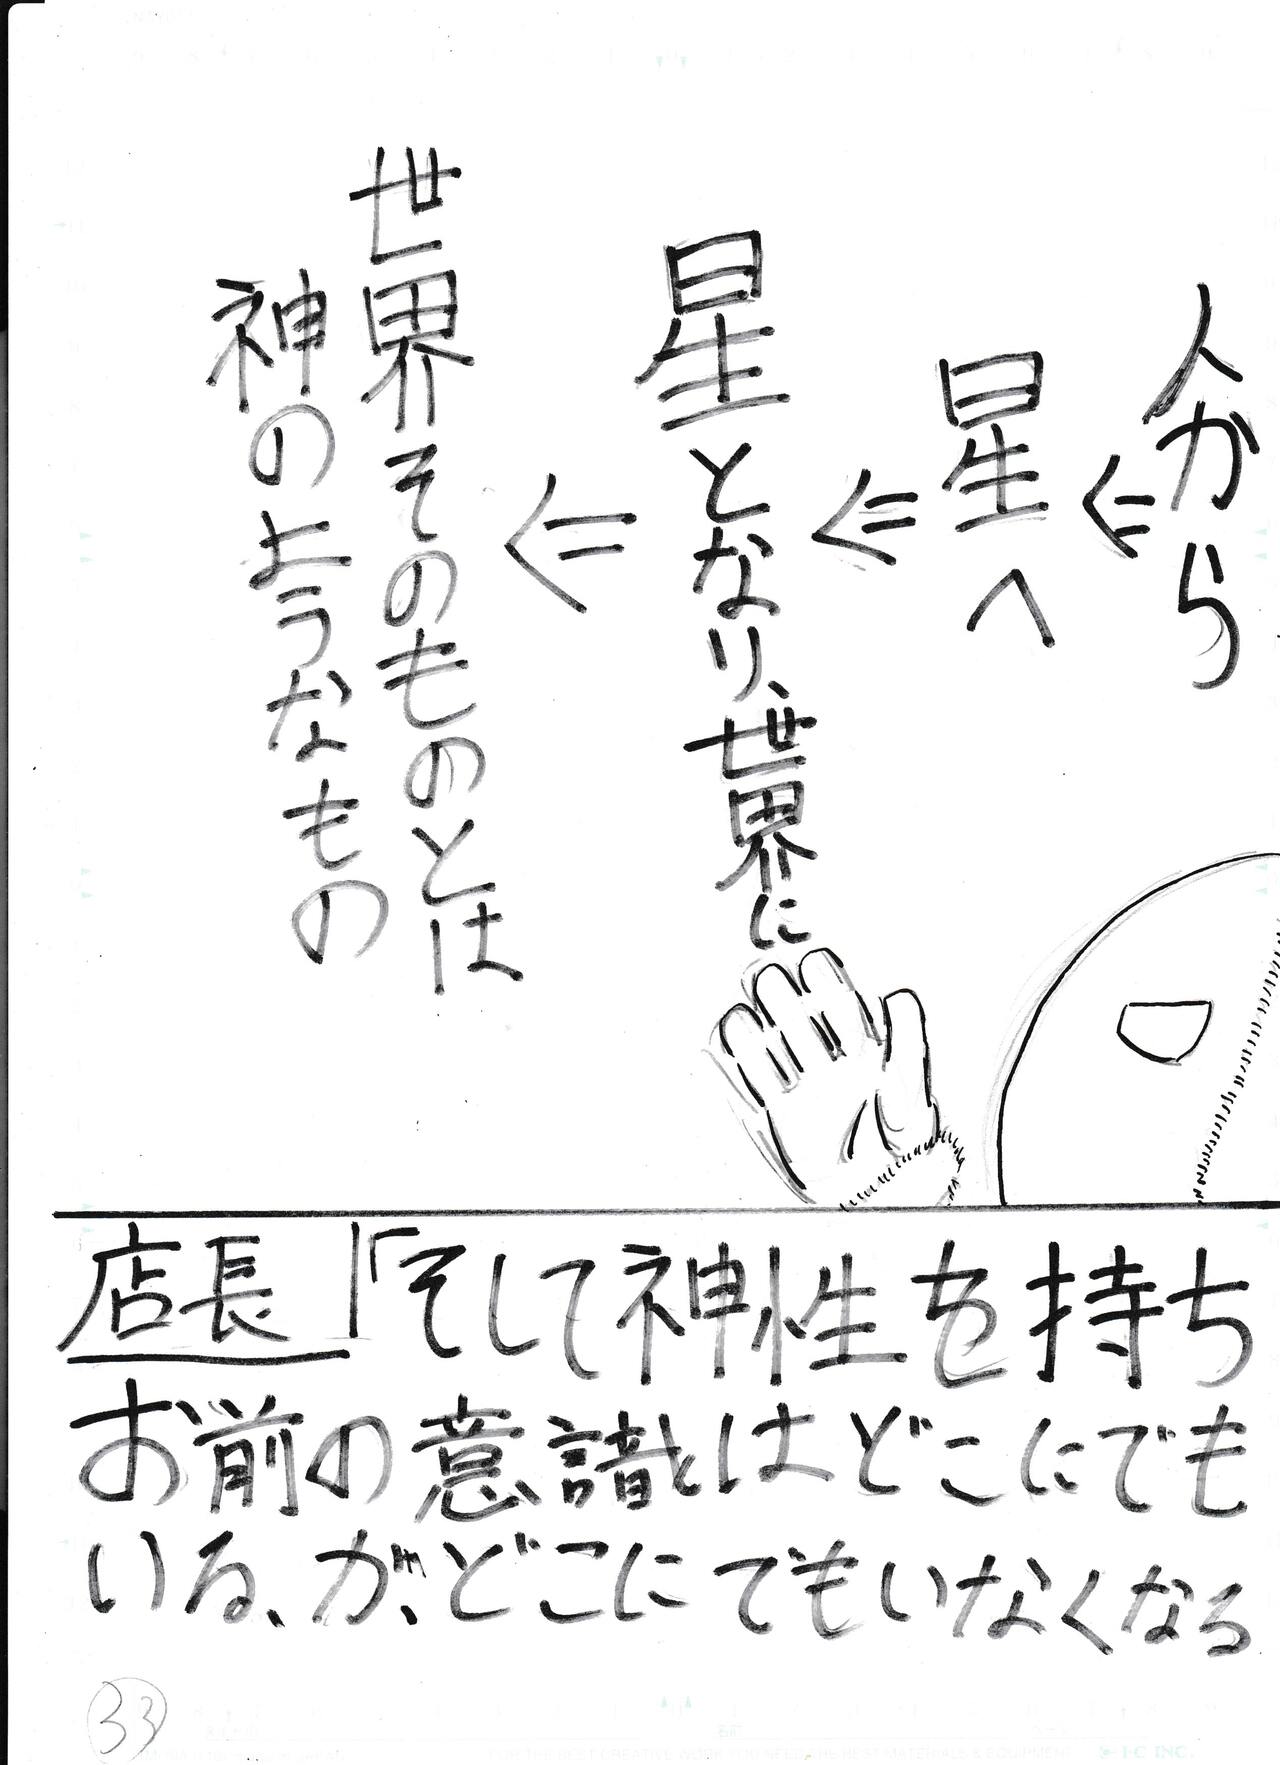 人から
⇐
星へ
⇐
星となり、世界に
⇐
世界そのものとは
神のようなもの
店長「そして神性を持ち
お前の意識はどこにでも
いる、が、どこにでもいなくなる
33
FOR THE BEST CREATIVE WORK YOU NEED THE BEST MATERIALS & EQUIPMENT
I-C INC.